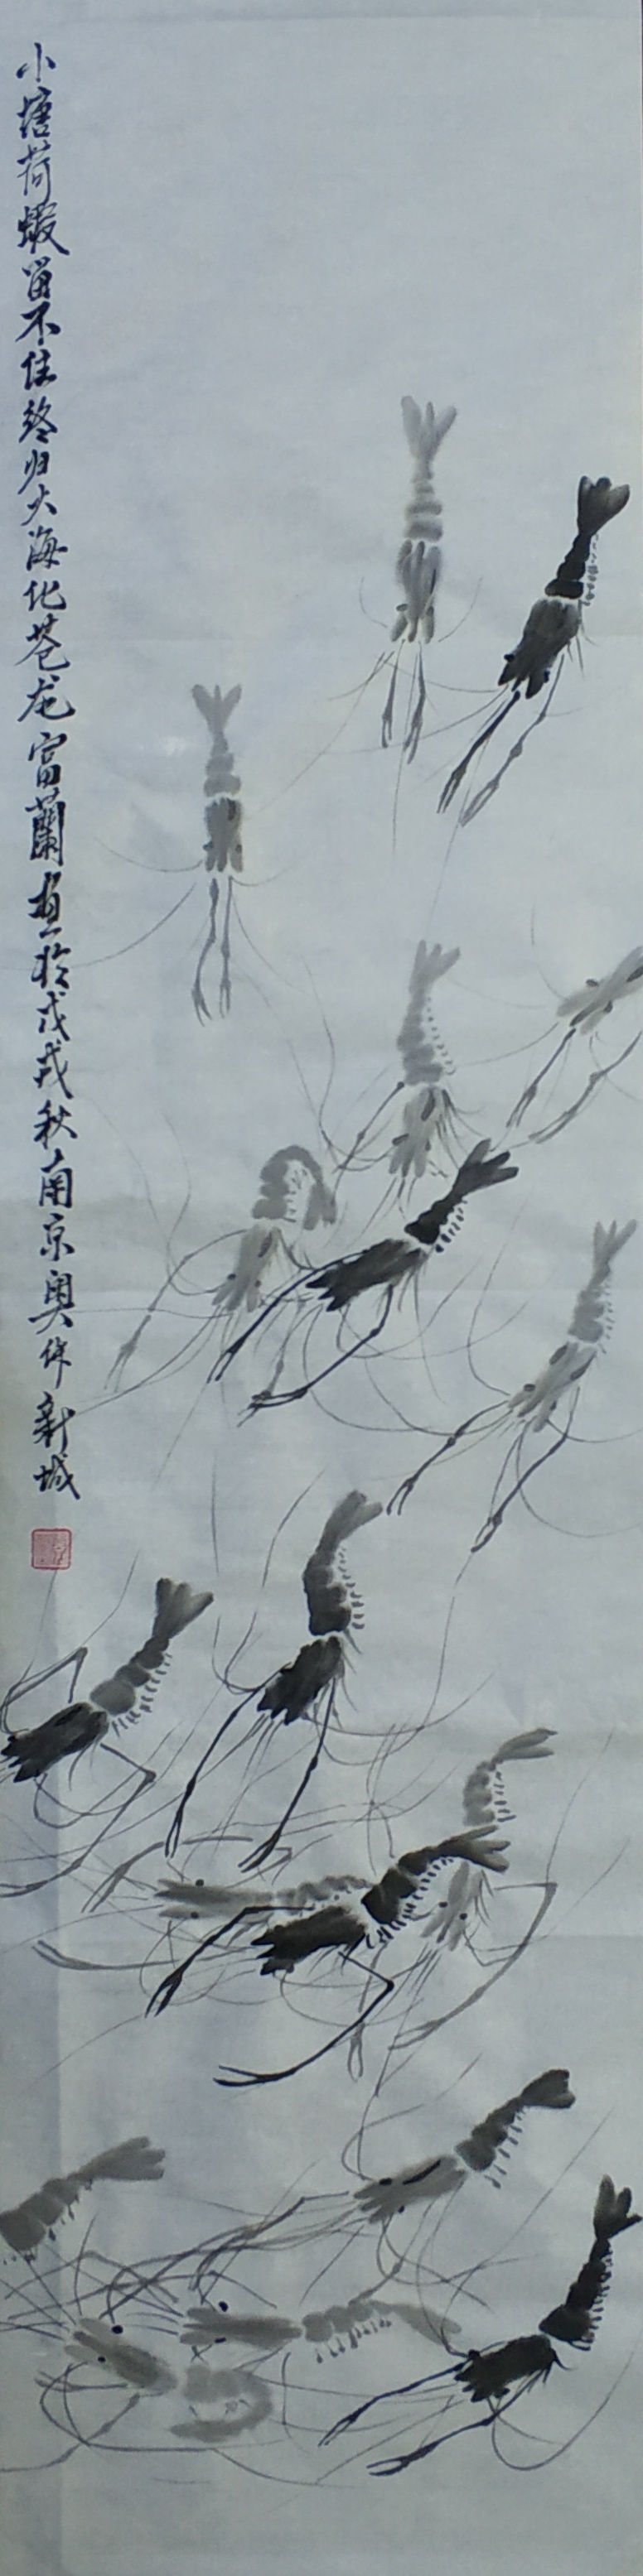 小塘荷蝦留不住终归大海化苍龙富蘭画於戊戌秋南京奥体新城